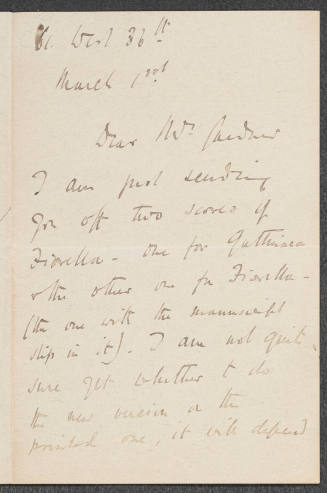 61. West 36th
March 1rst
Dear Mrs Gardner
I am just sending
you off two scores of
Fiorella - one for Gatticasa
& the other one for Fiorella -
(the one with the manuscript
slip in it). I am not quite
sure yet whether to do
the new version or the
printed one, it will depend